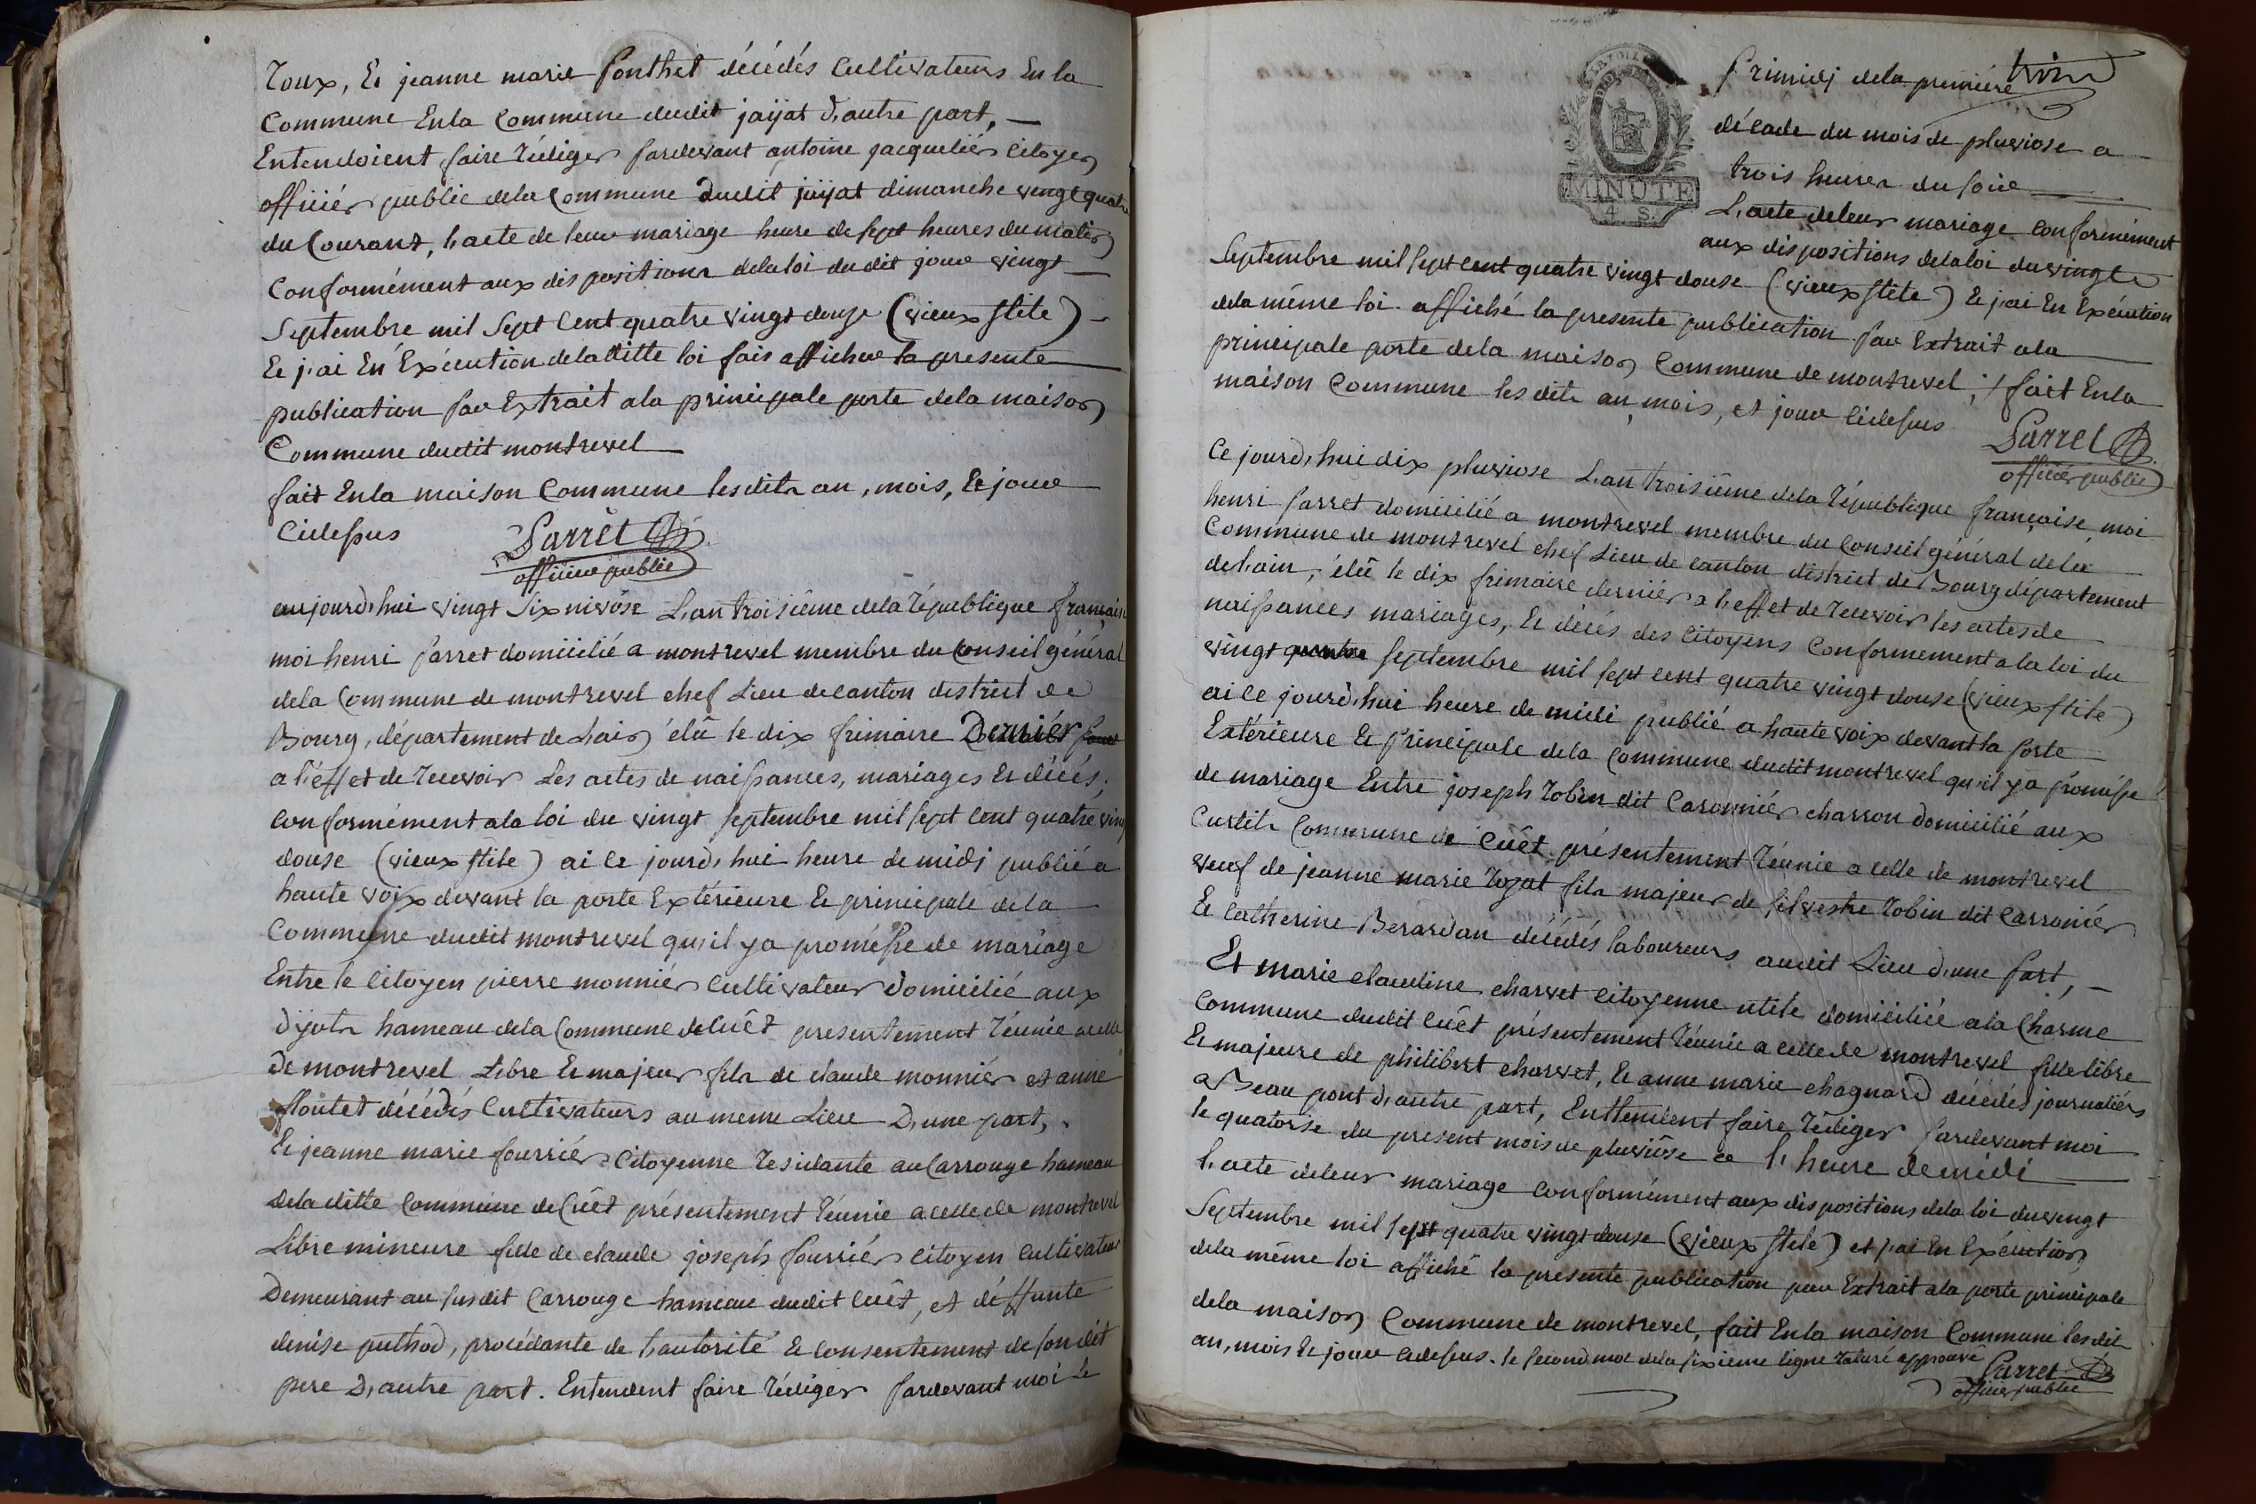 Toux, Et jeanne marie ponthet décédés Cultivateurs En la
Commune En la Commune dudit jaÿat d'autre part, —
Entendoient faire rédiger pardevant antoine jacquelier citoyen
officier public dela Commune dudit jaÿat dimanche vengt quatre
du Courant, l'acte de leur mariage heure de sept heures du matin
Conformément aux dispositions dela loi du dit jour vingt
Septembre mil Sept Cent quatre vingt douze (vieux stile)
Et j'ai En Exécution de la ditte loi fais afficher la presente
publication par Extrait ala principale porte dela maison
Commune dudit montrevel
fait En la maison Commune lesdits an, mois, Et jour
Cidessus Parret
officier public
aujourd'hui vingt six nivôse L'an troisiême dela république française
moi henri parret domicilié a montrevel membre du Conseil général
dela Commune de montrevel chef Lieu de canton district de
Bourg, département de L'ain élû le dix frimaire Dernier
a l'éffet de recevoir Les actes de naissances, mariages Et décés,
conformément ala loi du vingt septembre mil sept cent quatre vingt
douse (vieux stile) ai ce jourd'hui heure de midj publié a
haute voix devant la porte Extérieure Et principale dela
Commune dudit montrevel qu'il y a promésse de mariage
Entre le Citoyen pierre monniér Cultivateur domicilié aux
dyots hameau dela Commune de Cuêt presentement réunie acelle
De montrevel Libre Et majeur fils de claude monniér et anne
floutet décédés Cultivateurs au meme Lieu D'une part,
Et jeanne marie fourriér Citoyenne residante au Carrouge hameau
Dela ditte Commune de Cuêt présentement réunie acelle de montrevel
Libre mineure fille de claude joseph fourriér citoyen cultivateur
Demeurant au susdit Carrouge hameau dudit Cuêt, et déffunte
denise puthod, procédante de l'autorité Et consentement de son dit
pere D'autre part. Entendent faire rédiger pardevant moi Le
Primidj dela première
décade du mois de pluviose a
trois heures du soir
L'acte deleur mariage conformément
aux dispositions dela loi du vingt
Septembre mil sept cent quatre vingt douse (vieux stile) Et j'ai En Exécution
dela même loi affiché la presente publication par Extrait ala
principale porte dela maison Commune de montrevel, fait En la
maison Commune les dits an, mois, et jour cidessus
Parret
officier public
Ce jourd'hui dix pluviose L'an troisiême dela république française, moi
henri parret domicilié a montrevel membre du Conseil général dela
Commune de montrevel chef Lieu de canton district de Bourg département
de l'ain, élû le dix frimaire derniér a l'éffet de recevoir les actes de
naissances mariages, Et décés des citoyens Conformement a la loi du
vingt septembre mil sept cent quatre vingt douse (vieux stile)
ai ce jourd'hui heure de midi publié a haute voix devant la porte
Extérieure Et principale dela Commune dudit montrevel qu'il y a promésse
de mariage Entre joseph robin dit Caronniér charron domicilié aux
Curtils Commune de Cuêt présentement réunie a celle de montrevel
veuf de jeanne marie royat fils majeur de silvestre robin dit Carroniér
Et Catherine Berardan décédés laboureurs audit Lieu d'une part,
Et marie claudine charvet citoyenne utile domiciliée ala Charme
Commune dudit Cuêt présentement réunie a celle de montrevel fille libre
Et majeure de philibert charvet, Et anne marie chagnard décédés journaliérs
a Beau pont d'autre part, Enttendent faire rédiger pardevant moi
le quatorse du present mois de pluviôse a l'heure de midi
l'acte deleur mariage conformément aux dispositions dela loi du vingt
Septembre mil sept quatre vingt douse (vieux stile) et j'ai En Exécution
dela même loi affiché la presente publication par Extrait ala porte principale
dela maison Commune de montrevel, fait En la maison Commune les dits
an, mois Et jour cidessus. le second mot dela sixieme ligne raturé approuvé
Parret
officier public
MINUTE
4. S.